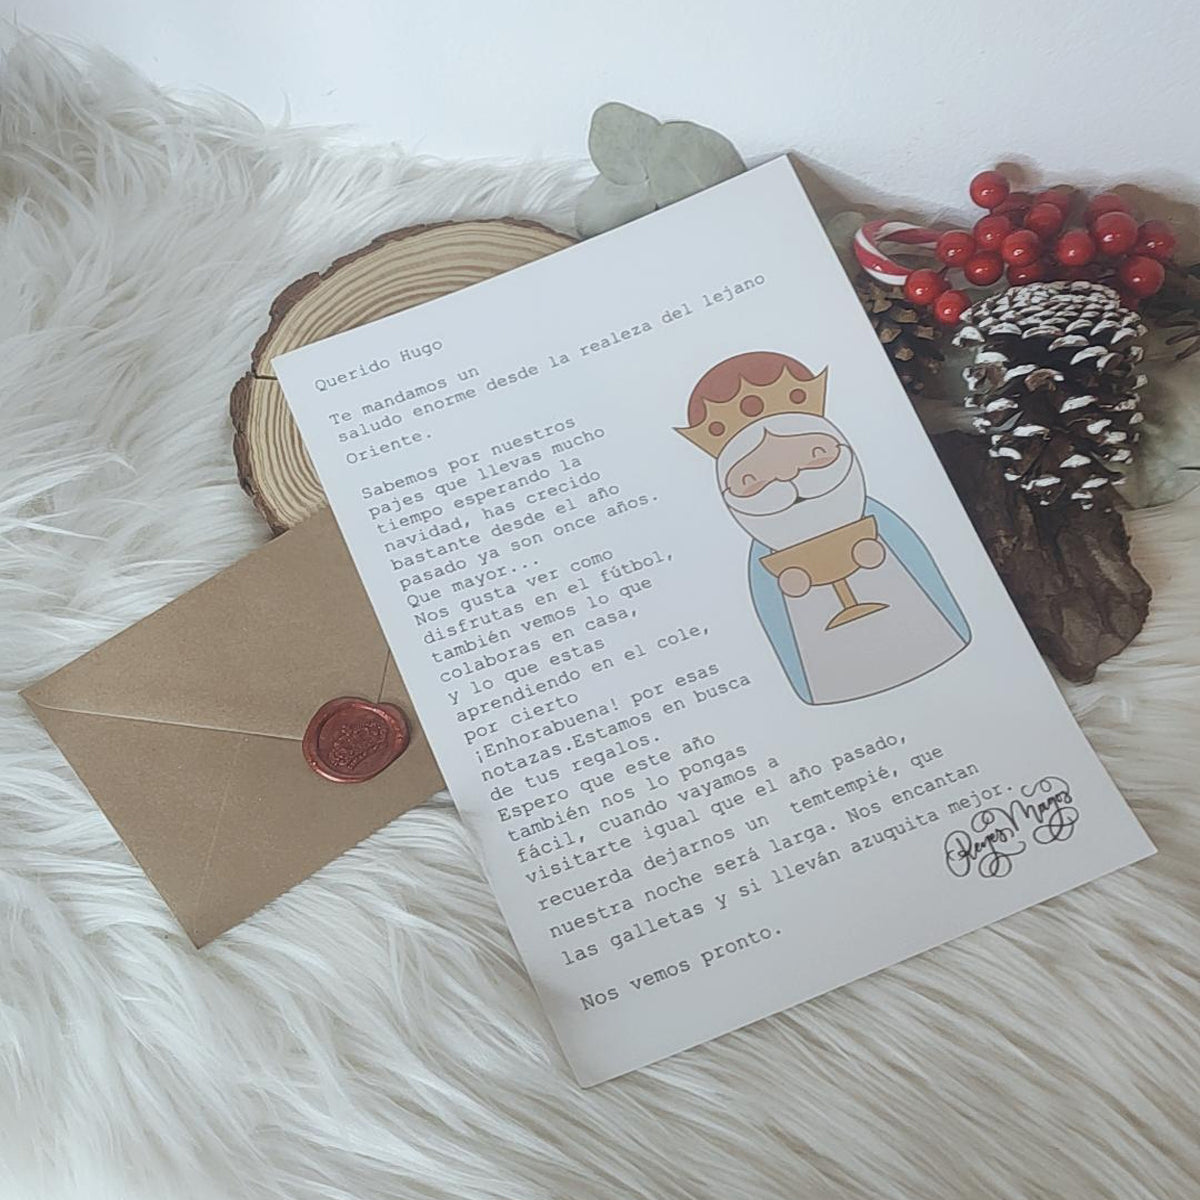 Querido Hugo
Te mandamos un
saludo enorme desde la realeza del lejano
Oriente.
Sabemos por nuestros
pajes que llevas mucho
tiempo esperando la
navidad, has crecido
bastante desde el año
pasado ya son once años.
Que mayor...
Nos gusta ver como
disfrutas en el fútbol,
también vemos lo que
colaboras en casa,
y lo que estas
aprendiendo en el cole,
por cierto
¡Enhorabuena! por esas
notazas.Estamos en busca
de tus regalos.
Espero que este año
también nos lo pongas
fácil, cuando vayamos a
visitarte igual que el año pasado,
recuerda dejarnos un temtempié, que
nuestra noche será larga. Nos encantan
las galletas y si lleván azuquita mejor.
Reyes Magos
Nos vemos pronto.